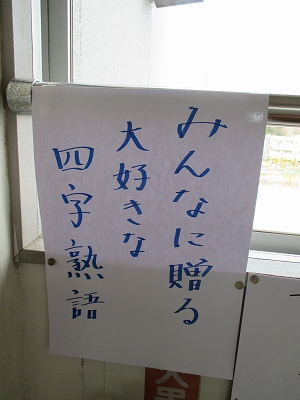 みんなに贈る
大好きな
四字熟語